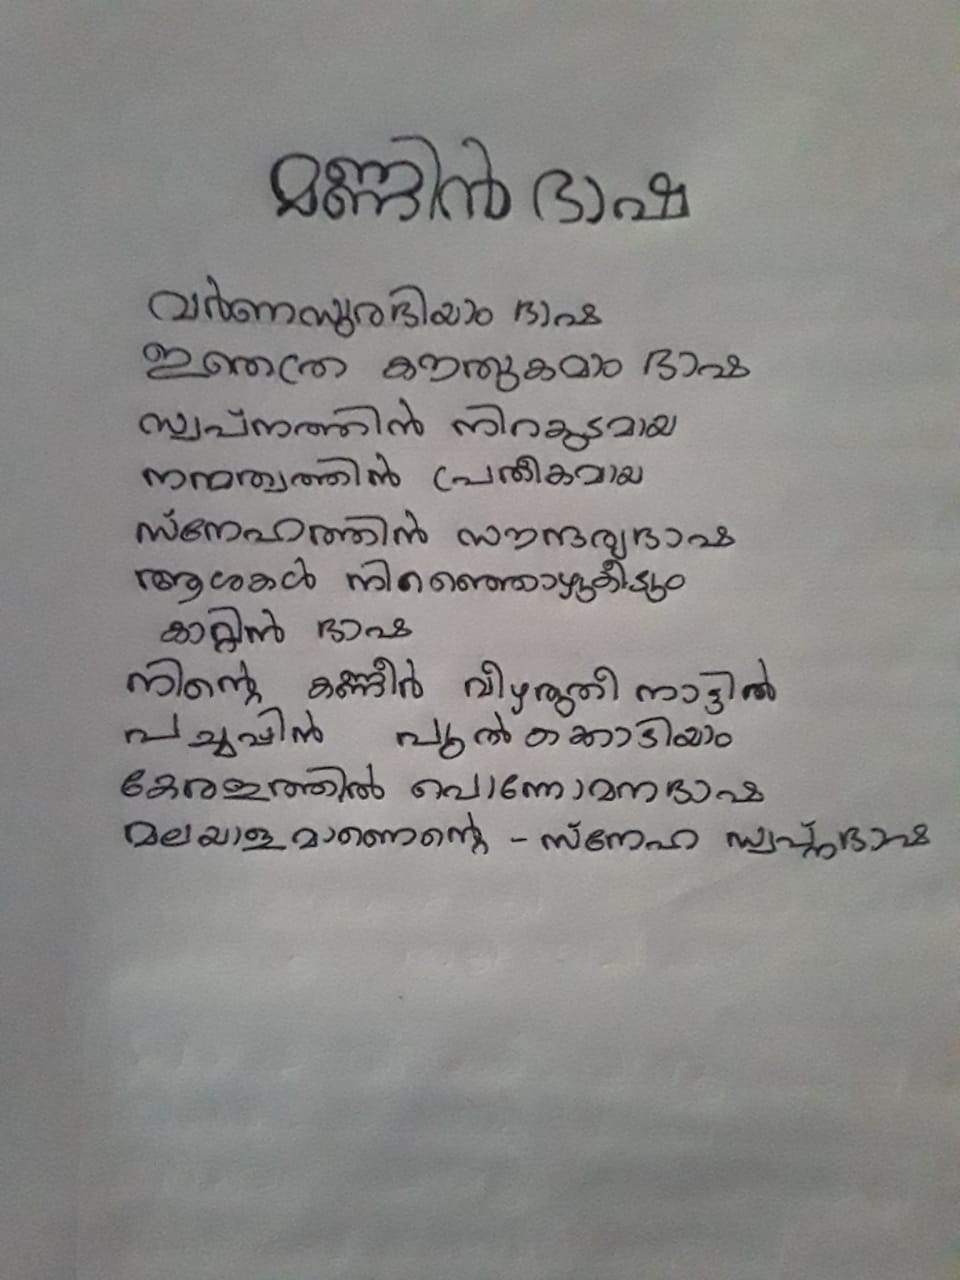 മണ്ണിൻ ഭാഷ
വർണസുരഭിയാം ഭാഷ
ഇതെത്ര കൗതുകമാം ഭാഷ
സ്വപ്നത്തിൻ നിറകുടമായ
നന്മത്വത്തിൻ പ്രതീകമായ
സ്നേഹത്തിൻ സൗന്ദര്യഭാഷ
ആശകൾ നിറഞ്ഞൊഴുകീടും
കാറ്റിൻ ഭാഷ
നിന്റെ കണ്ണീർ വീഴരുതീ നാട്ടിൽ
പച്ചപ്പിൻ പൂൽകക്കൊടിയാം
കേരളത്തിൽ പൊന്നോമനഭാഷ
മലയാളമാണെന്റെ - സ്നേഹ സ്വപ്നഭാഷ